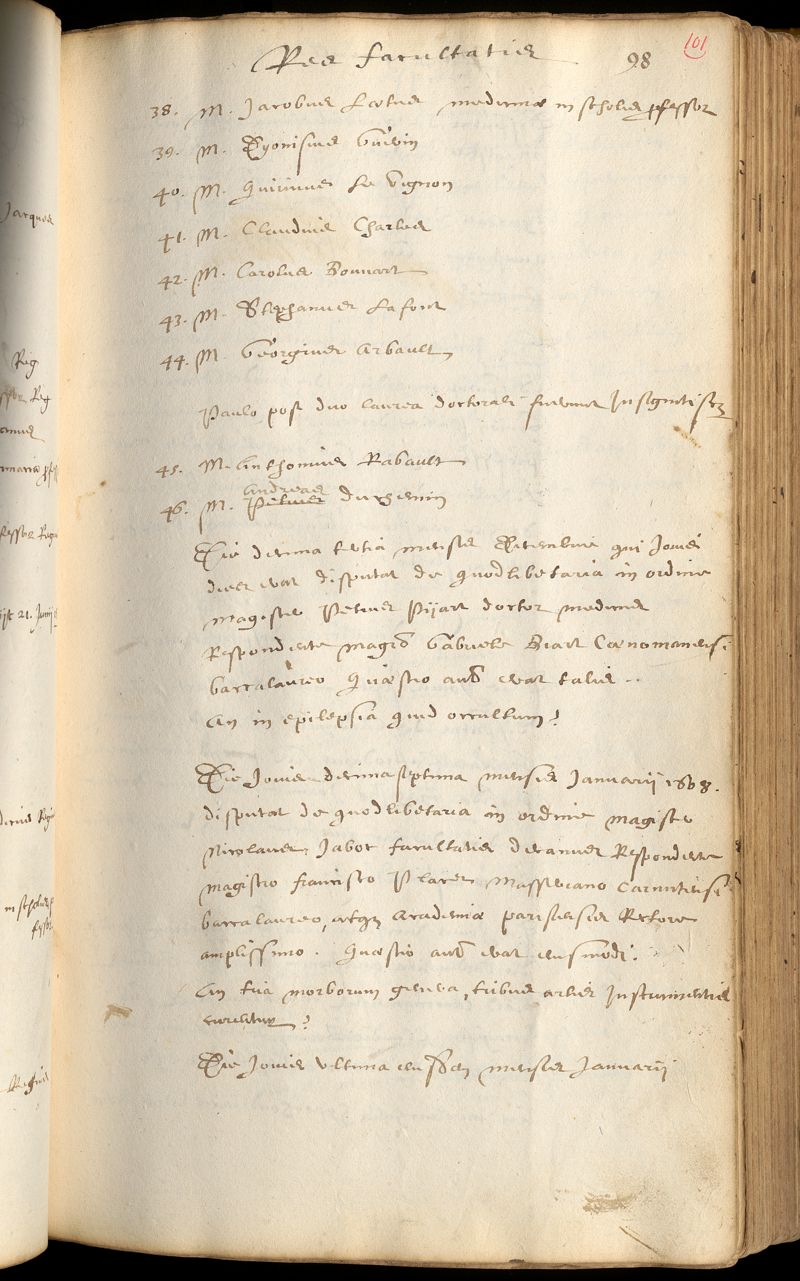 Res facultatis 98 101
38. M. Jacobus Laetus medicinae in scholis professor
39. M. Dyonisius Guérin
40. M. Quirinus Le Vignon
41. M. Claudius Charles
42. M. Carolus Bouvart
43. M. Stephanus Lafont
44. M. Georgius Arbault
Paulo post duo laurea doctorali fuerunt Insigniti scz
45. M. Anthonius Rabault
Andreas
46. M. Petrus du
Die decima tertia mensis Decembris qui Jovis
dies erat disputat de quodlibetaria in ordine
magister Petrus Pijart doctor medicus
Respondente magro Gabriele Biart Caenomanensi
baccalaureo Quaestio aut erat talis ..
An in epilepsia quid occultum?
Die Jovis decima septima mensis Januarii 1608.
disputat de quodlibetaria in ordine magister
Nicolaus Jabot facultatis decanus Respondente
magistro francisco Carnutensi
baccalaureo, atque Academiae parisiensis Rectore
amplissimo. Quaestio aut erat eiusmodi.
An tria morborum genera, tribus artis Instrumentis
curentur?
Die Jovis ultima eiusdem mensis Januarii
Jacques
Reg
Reg
mensis
Regis
21. Junij
Regi
in scholis